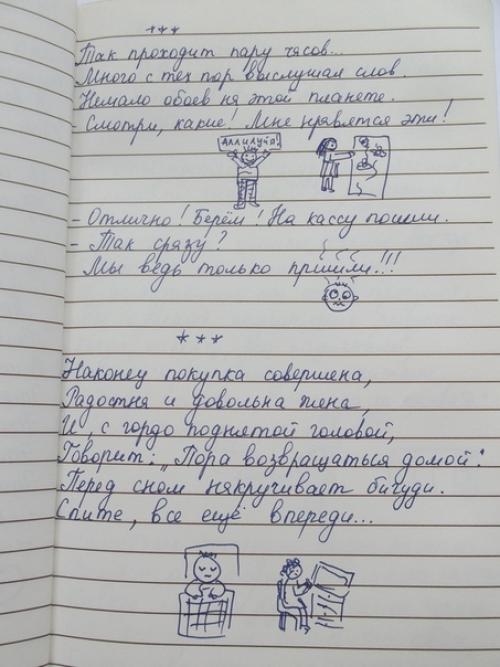 ***
Так проходит пару часов...
Много с тех пор выслушал слов.
Немало обоев на этой планете.
- Смотри, какие! Мне нравятся эти!
Аллилуйя!
- Отлично! Берём! На кассу пошли.
- Так сразу?
Мы ведь только пришли!!!
***
Наконец покупка совершена,
Радостна и довольна жена,
И, с гордо поднятой головой,
Говорит: „Пора возвращаться домой".
Перед сном накручивает бигуди.
Спите, все ещё впереди...